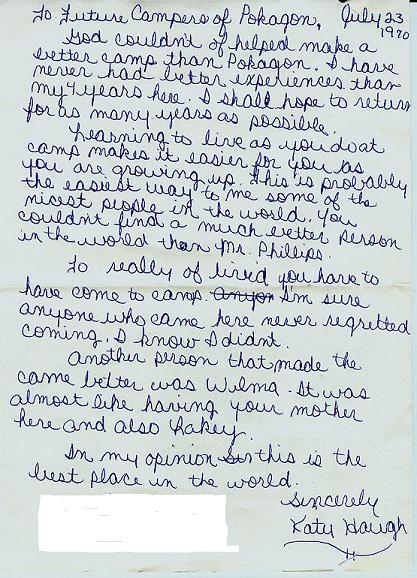 To Future Campers of Pokagon, July 23
1970
God couldn't of helped make a
better camp than Pokagon. I have
never had better experiences than
my 4 years here. I shall hope to return
for as many years as possible.
Learning to live as you do at
camp makes it easier for you as
you are growing up. This is probably
the easiest way to me some of the
nicest people in the world. You
couldn't find a much better person
in the world than Mr. Phillips.
To really of lived you have to
have come to camp. Anyon I'm sure
anyone who came here never regretted
coming. I know I didnt.
Another person that made the
came better was Wilma. It was
almost like having your mother
here and also Lakey.
In my opinion this is the
best place in the world.
Sincerely
Katy Haugh